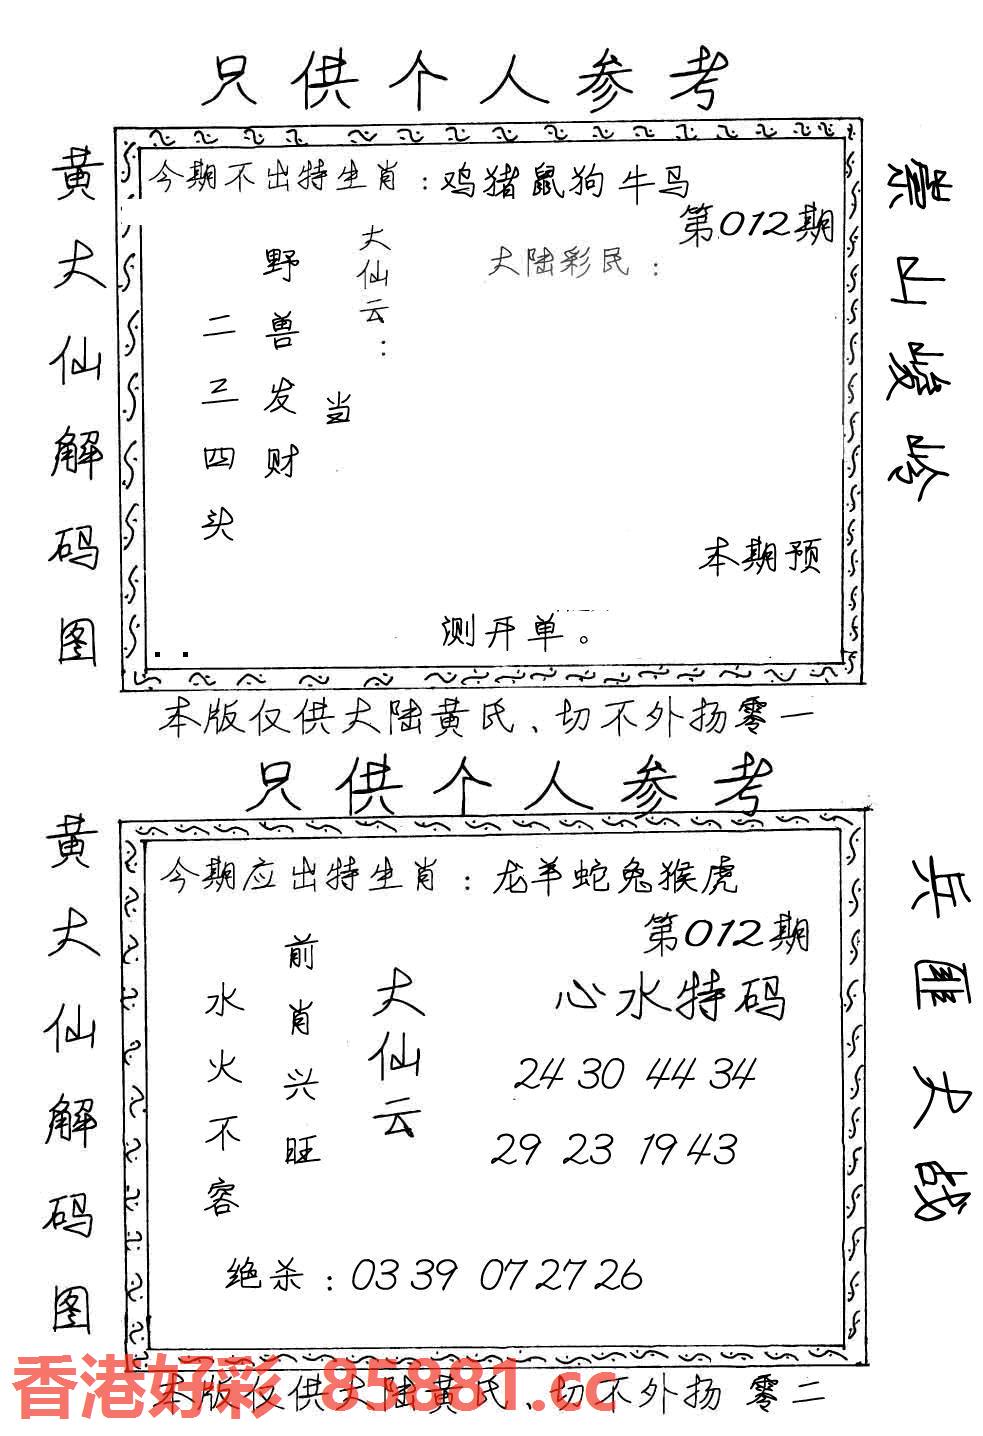 只供个人参考
黄大仙解码图
今期不出特生肖：鸡猪鼠狗牛马
第012期
大陆彩民：
大仙云：
野兽发财
二三四头
当
本期预
测开单。
崇山峻岭
本版仅供大陆黄氏、切不外扬零一
只供个人参考
黄大仙解码图
今期应出特生肖：龙羊蛇兔猴虎
第012期
心水特码
大仙云
前肖兴旺
水火不容
24 30 44 34
29 23 19 43
绝杀：03 39 07 27 26
兵匪大战
本版仅供大陆黄氏、切不外扬 零二
香港好彩 85881.cc